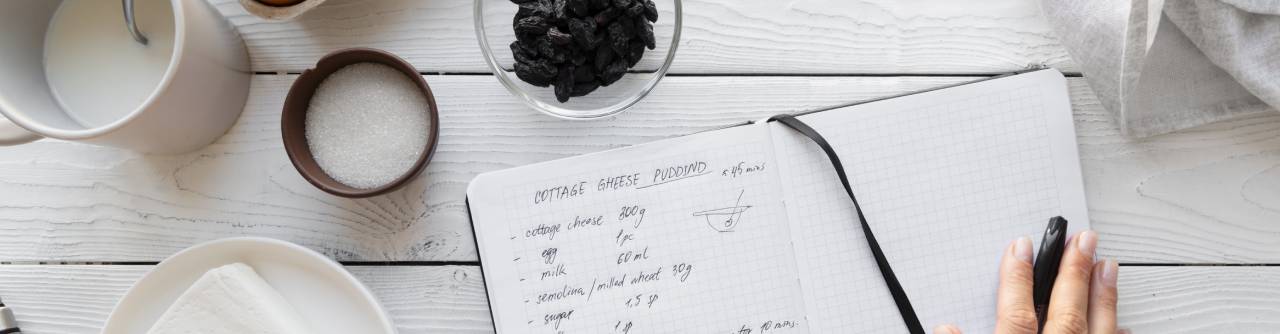 COTTAGE GHEESE PUDDIND ≈ 45 mins
- cottage cheese 300g
- egg 1pc
- milk 60 ml
- semolina / milled wheat 30g
- sugar 1,5 sp
1 sp
for 10 mins.